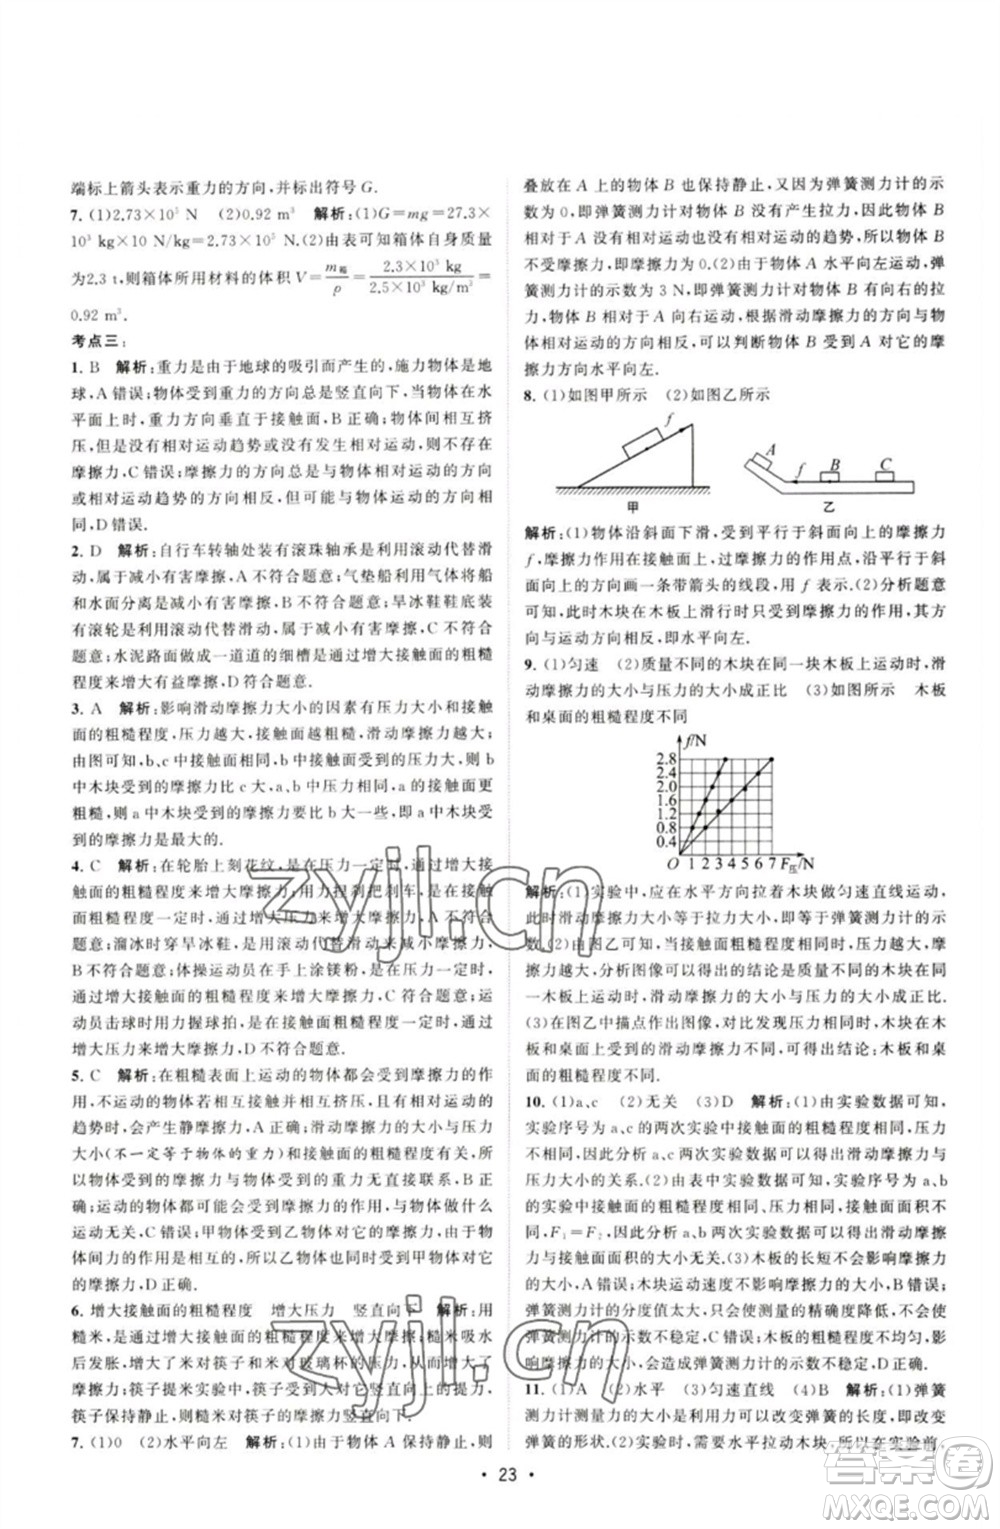 端标上箭头表示重力的方向,并标出符号 G.
7. (1)2.73×10⁵ N (2)0.92 m³ 解析:(1)G=mg=27.3×
10³ kg×10 N/kg=2.73×10⁵ N.(2)由表可知箱体自身质量
为2.3 t,则箱体所用材料的体积 V=m箱/ρ=2.3×10³ kg/2.5×10³ kg/m³=
0.92 m³.
考点三:
1. B 解析:重力是由于地球的吸引而产生的,施力物体是地
球,A 错误;物体受到的重力的方向总是竖直向下,在水
平面上时,重力方向垂直于接触面,B 正确;物体相互挤
压,但是没有相对运动趋势或没有发生相对运动,则不会
产生摩擦力,C 错误;摩擦力的方向总是与物体相对运动
或相对运动趋势的方向相反,但可能与物体的运动方向相
同,D 错误.
2. D 解析:自行车转轴处装有滚珠轴承是利用滚动代替滑
动,属于减小有害摩擦,A 不符合题意;气垫船利用气体将船
和水面分离是减小有害摩擦,B 不符合题意;旱冰鞋鞋底装
有滚轮是利用滚动代替滑动,属于减小有害摩擦,C 不符
合题意;水泥路面做成一道道的细槽是通过增大接触面的粗糙
程度来增大有益摩擦,D 符合题意.
3. A 解析:影响滑动摩擦力大小的因素有压力大小和接触
面的粗糙程度,压力越大、接触面越粗糙,滑动摩擦力越大;
由图可知,b、c 中接触面的粗糙程度相同,b 中压力更大,则
b 中木块受到的摩擦力比 c 大;a、b 中压力相同,a 的接触面更
粗糙,则 a 中木块受到的摩擦力要比 b 大,所以 a 中木块受到
的摩擦力是最大的.
4. C 解析:在轮胎上刻花纹,是在压力一定时,通过增大接
触面的粗糙程度来增大摩擦力;用力捏刹把刹车,是在接触面
粗糙程度一定时,通过增大压力来增大摩擦力,A 不符合题
意;溜冰时穿旱冰鞋,是用滚动代替滑动来减小摩擦力,
B 不符合题意;体操运动员在手上涂镁粉,是在压力一定时,
通过增大接触面的粗糙程度来增大摩擦力,C 符合题意;运
动员击球时用力握球拍,是在接触面粗糙程度一定时,通过
增大压力来增大摩擦力,D 不符合题意.
5. C 解析:在粗糙表面上运动的物体都会受到摩擦力的作
用,不运动的物体若与其他物体相互接触并挤压,有相对运动趋
势时,会产生静摩擦力,A 正确;滑动摩擦力大小与压力
大小(不一定等于物体的重力)和接触面的粗糙程度有关,
所以物体受到的摩擦力与重力的大小没有直接联系,B 正
确;运动的物体都有惯性,惯性大小与物体是否在做什么
运动无关,C 错误;甲物体受到乙物体对它的摩擦力,由于物
体间力的作用是相互的,所以乙物体也同时受到甲物体对它
的摩擦力,D 正确.
6. 增大接触面的粗糙程度 增大压力 竖直向下 解析:用
糙米,是通过增大接触面的粗糙程度来增大摩擦力;糙米吸水
后发胀,增大了米对筷子和对玻璃杯的压力,可增大
摩擦力;筷子提米实验中,筷子对米的摩擦力竖直向上,米和
筷子保持静止,则糙米对筷子的摩擦力竖直向下.
7. (1)0 (2)水平向左 解析:(1)由于物体 A 保持静止,则
叠放在 A 上的物体 B 也保持静止,又因为弹簧测力计的示
数为 0,即弹簧测力计对物体 B 没有产生拉力,则物体 B
没有相对运动的趋势,所以物体 B
不受摩擦力,即摩擦力为 0.(2)当物体 A 水平向左运动,弹
簧测力计的示数为 3 N,即物体 B 受到弹簧测力计向右的拉
力,则物体 B 相对于 A 向右运动,根据滑动摩擦力的方向与
物体相对运动的方向相反,可以判断物体 B 受到 A 对它的摩
擦力方向水平向左.
8. (1)如图甲所示 (2)如图乙所示
f
甲
A
f
B
C
乙
解析:(1)物体沿斜面下滑,受到平行于斜面向上的摩擦力
f,摩擦力作用在接触面上,过摩擦力的作用点,沿平行于斜
面向上的方向画一条带箭头的线段,即可表示.(2)分析题意
可知,此时木块在木板上滑行时只受到摩擦力的作用,其方
向与运动方向相反,即水平向左.
9. (1)匀速 (2)质量不同的木块在同一块木板上运动时,滑
动摩擦力的大小与压力的大小成正比 (3)如图所示 木板
和桌面的粗糙程度不同
f/N
2.8
2.4
2.0
1.6
1.2
0.8
0.4
O 1 2 3 4 5 6 7 F压/N
解析:(1)实验中,应在水平方向拉着木块做匀速直线运动,
此时滑动摩擦力大小等于拉力大小,即等于弹簧测力计的示
数.(2)由图乙可知,木板表面粗糙程度相同时,压力越大,摩
擦力越大,分析图像可以得出的结论是质量不同的木块在同
一块木板上运动时,滑动摩擦力的大小与压力的大小成正比.
(3)在图乙中描点作出图像,对比发现压力相同时,木块在木
板和桌面上受到的滑动摩擦力不同,可能的原因是木板和桌
面的粗糙程度不同.
10. (1)a、c (2)无关 (3)D 解析:(1)由实验数据可知,实验
序号为 a、c 的两次实验中接触面的粗糙程度相同,压力不
同,因此分析 a、c 两次实验数据可得出滑动摩擦力大小与
压力大小的关系.(2)由表中实验数据可知,实验序号为 a、b
的实验中接触面的粗糙程度相同、压力大小相同,接触面积不
同,F₁=F₂,因此分析 a、b 两次实验可以得出滑动摩擦力与
接触面面积的大小无关.(3)木板的长短不会影响滑动摩擦力
的大小,A 错误;木块运动速度不影响摩擦力的大小,B 错误;
弹簧测力计的分度值太大,只会使测量的精确度降低,不会使
弹簧测力计的示数不稳定,C 错误;木板的粗糙程度不均匀,影
响摩擦力的大小,导致弹簧测力计的示数不稳定,D 符合题意.
11. (1)A (2)水平 (3)匀速直线 (4)变大 解析:(1)弹簧测
力计测量力的大小时,力会改变弹簧的长度,即力可以改变弹
簧的形状.(2)实验时,需要水平拉动木块,所以在实验前,
· 23 ·
zyjl.cn
zyjl.cn
答案圈
MXQE.COM